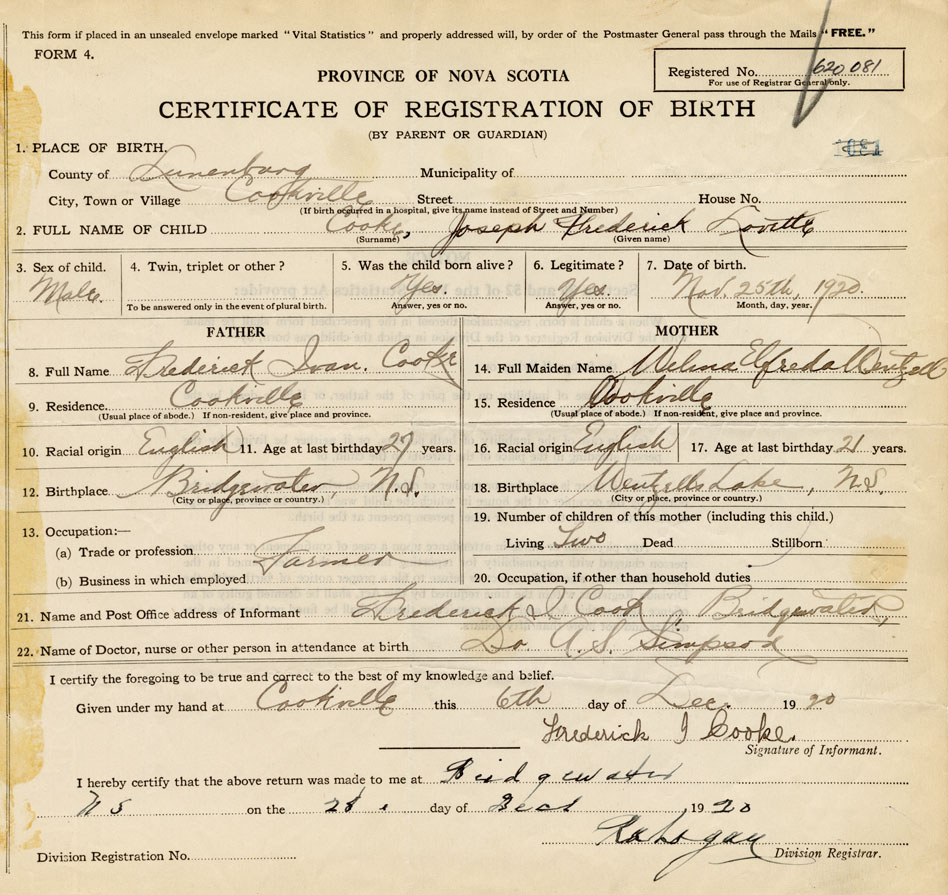 This form if placed in an unsealed envelope marked "Vital Statistics" and properly addressed will, by order of the Postmaster General pass through the Mails "FREE."
FORM 4.
PROVINCE OF NOVA SCOTIA
Registered No. 620 081
For use of Registrar General only.
CERTIFICATE OF REGISTRATION OF BIRTH
(BY PARENT OR GUARDIAN)
1. PLACE OF BIRTH.
081
County of Lunenburg Municipality of
City, Town or Village Cookville Street House No.
(If birth occurred in a hospital, give its name instead of Street and Number)
2. FULL NAME OF CHILD Cooke, Joseph Frederick Lovitte
(Surname) (Given name)
3. Sex of child. 4. Twin, triplet or other ? 5. Was the child born alive ? 6. Legitimate ? 7. Date of birth.
Male. Yes. Yes. Nov. 25th, 1920.
To be answered only in the event of plural birth. Answer, yes or no. Answer, yes or no. Month, day, year.
FATHER MOTHER
8. Full Name Frederick Ivan. Cooke 14. Full Maiden Name Welma Elfreda Wentzell
9. Residence. Cookville 15. Residence Cookville
(Usual place of abode.) If non-resident, give place and province. (Usual place of abode.) If non-resident, give place and province.
10. Racial origin English 11. Age at last birthday 27 years. 16. Racial origin English 17. Age at last birthday 21 years.
12. Birthplace Bridgewater, N.S. 18. Birthplace Wentzells Lake, N.S.
(City or place, province or country.) (City or place, province or country.)
13. Occupation:— 19. Number of children of this mother (including this child.)
(a) Trade or profession Farmer Living Two Dead Stillborn
(b) Business in which employed 20. Occupation, if other than household duties
21. Name and Post Office address of Informant Frederick I Cook Bridgewater,
22. Name of Doctor, nurse or other person in attendance at birth Dr A. S. Simpson
I certify the foregoing to be true and correct to the best of my knowledge and belief.
Given under my hand at Cookville this 6th day of Dec. 1920
Frederick I Cooke.
Signature of Informant.
I hereby certify that the above return was made to me at Bridgewater
N S on the 28 day of 1920
Division Registration No. Division Registrar.